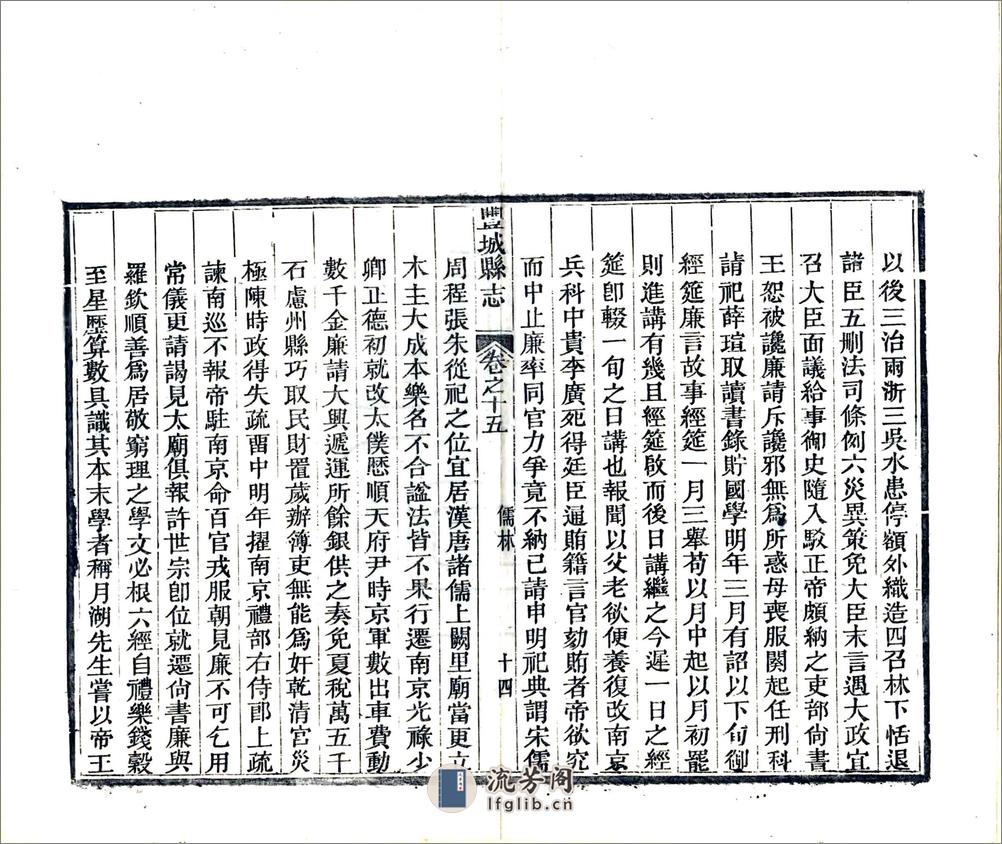 以後三治兩浙三吳水患停額外織造四召林下恬退
諸臣五刪法司條例六災異策免大臣末言遇大政宜
召大臣面議給事御史隨入駁正帝頗納之吏部尙書
王恕被讒廉請斥讒邪無爲所惑母喪服闋起任刑科
請祀薛瑄取讀書錄貯國學明年三月有詔以下旬御
經筵廉言故事經筵一月三舉苟以月中起以月初罷
則進講有幾且經筵啟而後日講繼之今遲一日之經
筵卽輟一旬之日講也報聞以父老欲便養復改南京
兵科中貴李廣死得廷臣通賄籍言官劾賄者帝欲究
而中止廉率同官力爭竟不納已請申明祀典謂宋儒
豐城縣志
卷之十五
儒林
十四
周程張朱從祀之位宜居漢唐諸儒上闕里廟當更立
木主大成本樂名不合諡法皆不果行遷南京光祿少
卿正德初就改太僕歷順天府尹時京軍數出車費動
數千金廉請大興遞運所餘銀供之奏免夏稅萬五千
石慮州縣巧取民財置歲辦簿吏無能爲奸乾淸宮災
極陳時政得失疏畱中明年擢南京禮部右侍郞上疏
諫南巡不報帝駐南京命百官戎服朝見廉不可乞用
常儀更請謁見太廟俱報許世宗卽位就遷尙書廉與
羅欽順善爲居敬窮理之學文必根六經自禮樂錢穀
至星歷算數具識其本末學者稱月湖先生嘗以帝王
流芳阁
lfglib.cn